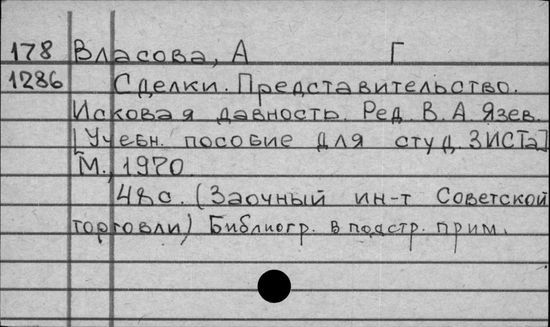 178 Власова, А Г
1286 Сделки. Представительство.
Исковая давность. Ред. В. А. Язев.
[Учебн. пособие для студ. ЗИСТа]
М., 1970.
48 с. (Заочный ин-т Советской
торговли) Библиогр. в подстр. прим.